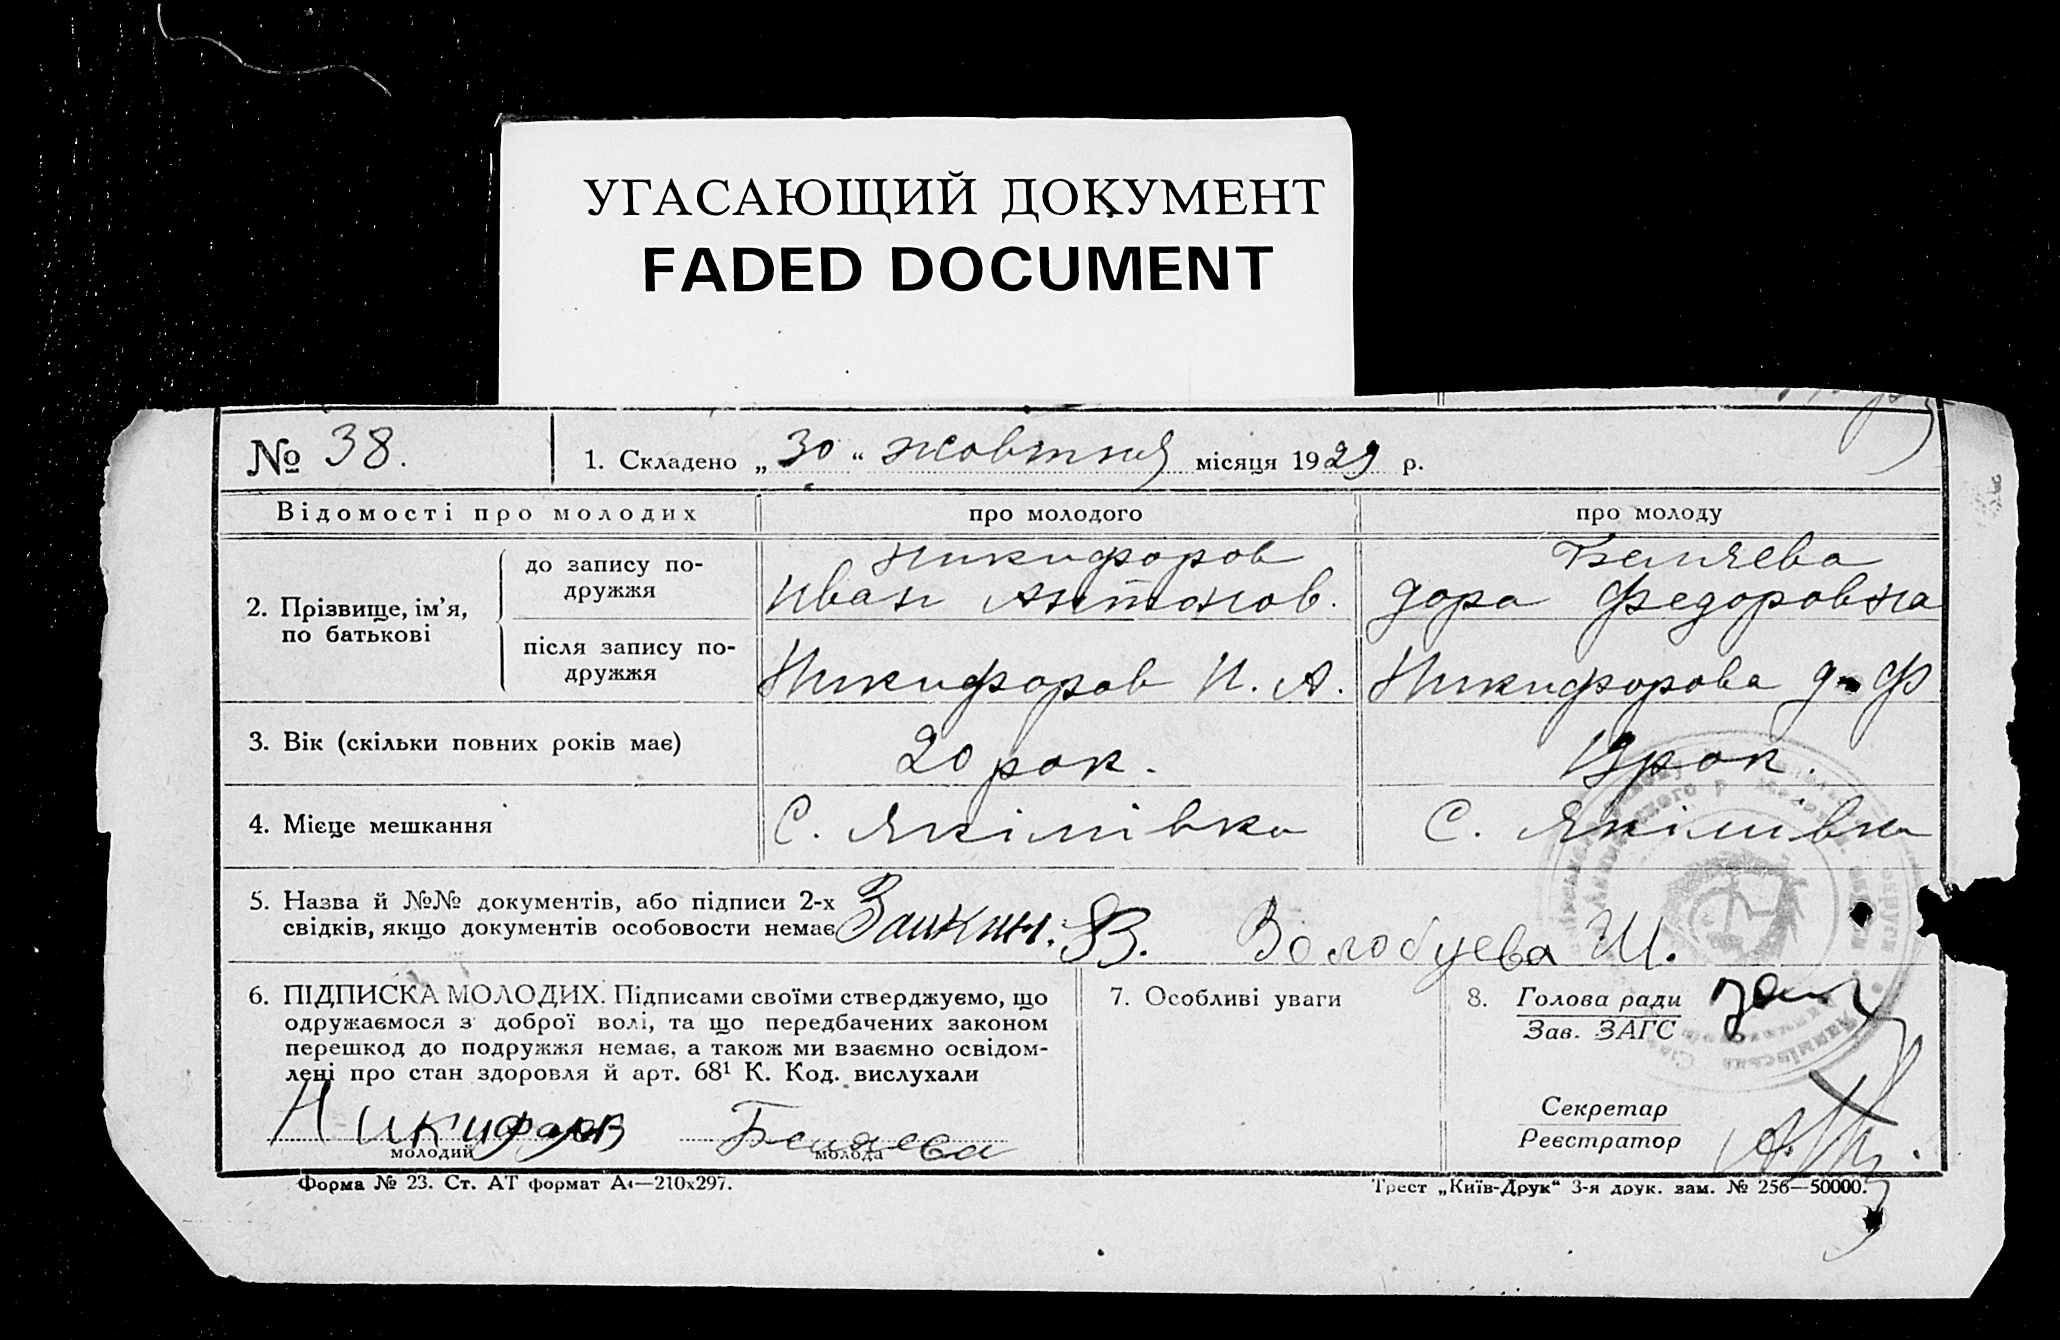 УГАСАЮЩИЙ ДОКУМЕНТ
FADED DOCUMENT
№ 38.
1. Складено „30“ жовтня місяця 1929 р.
Відомості про молодих
про молодого
про молоду
2. Прізвище, ім’я, по батькові
до запису по-
дружжя
Никифоров
Иван Антонов.
Беляева
Дора Федоровна
після запису по-
дружжя
Никифоров И. А.
Никифорова Д. Ф
3. Вік (скільки повних років має)
20 рок.
19 рок.
4. Місце мешкання
С. Якімівка
С. Якімівка
5. Назва й №№ документів, або підписи 2-х
свідків, якщо документів особовости немає
Заикин. В. Волобуева Ш.
6. ПІДПИСКА МОЛОДИХ. Підписами своїми стверджуємо, що
одружаємося з доброї волі, та що передбачених законом
перешкод до подружжя немає, а також ми взаємно освідом-
лені про стан здоровля й арт. 68¹ К. Код. вислухали
Никифоров
молодий
Беляева
молода
7. Особливі уваги
8. Голова ради
Зав. ЗАГС
Секретар
Реєстратор
Форма № 23. Ст. АТ формат А4—210х297.
Трест „Київ-Друк“ 3-я друк. зам. № 256—50000.